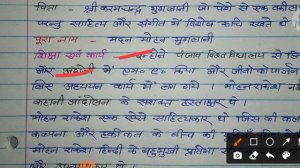 पिता - श्री करमचन्द गुगलानी जो पेशे से एक वकील
परन्तु साहित्य और संगीत में विशेष रूचि रखते थे ।
पूरा नाम - मदन मोहन गुगलानी
शिक्षा एवं कार्य - इन्होंने पंजाब विश्वविद्यालय से हि
और अंग्रेजी में एम० ए० किया और जीविकोपार्जन
लिए अध्यापन कार्य में लग गये । मोहन राकेश नई
कहानी आंदोलन के सशक्त हस्ताक्षर थे ।
मोहन राकेश एक ऐसे साहित्यकार थे जिस की कल
कल्पना और हकीकत के बीच की
मोहन राकेश हिन्दी के बहुमुखी प्रतिभा